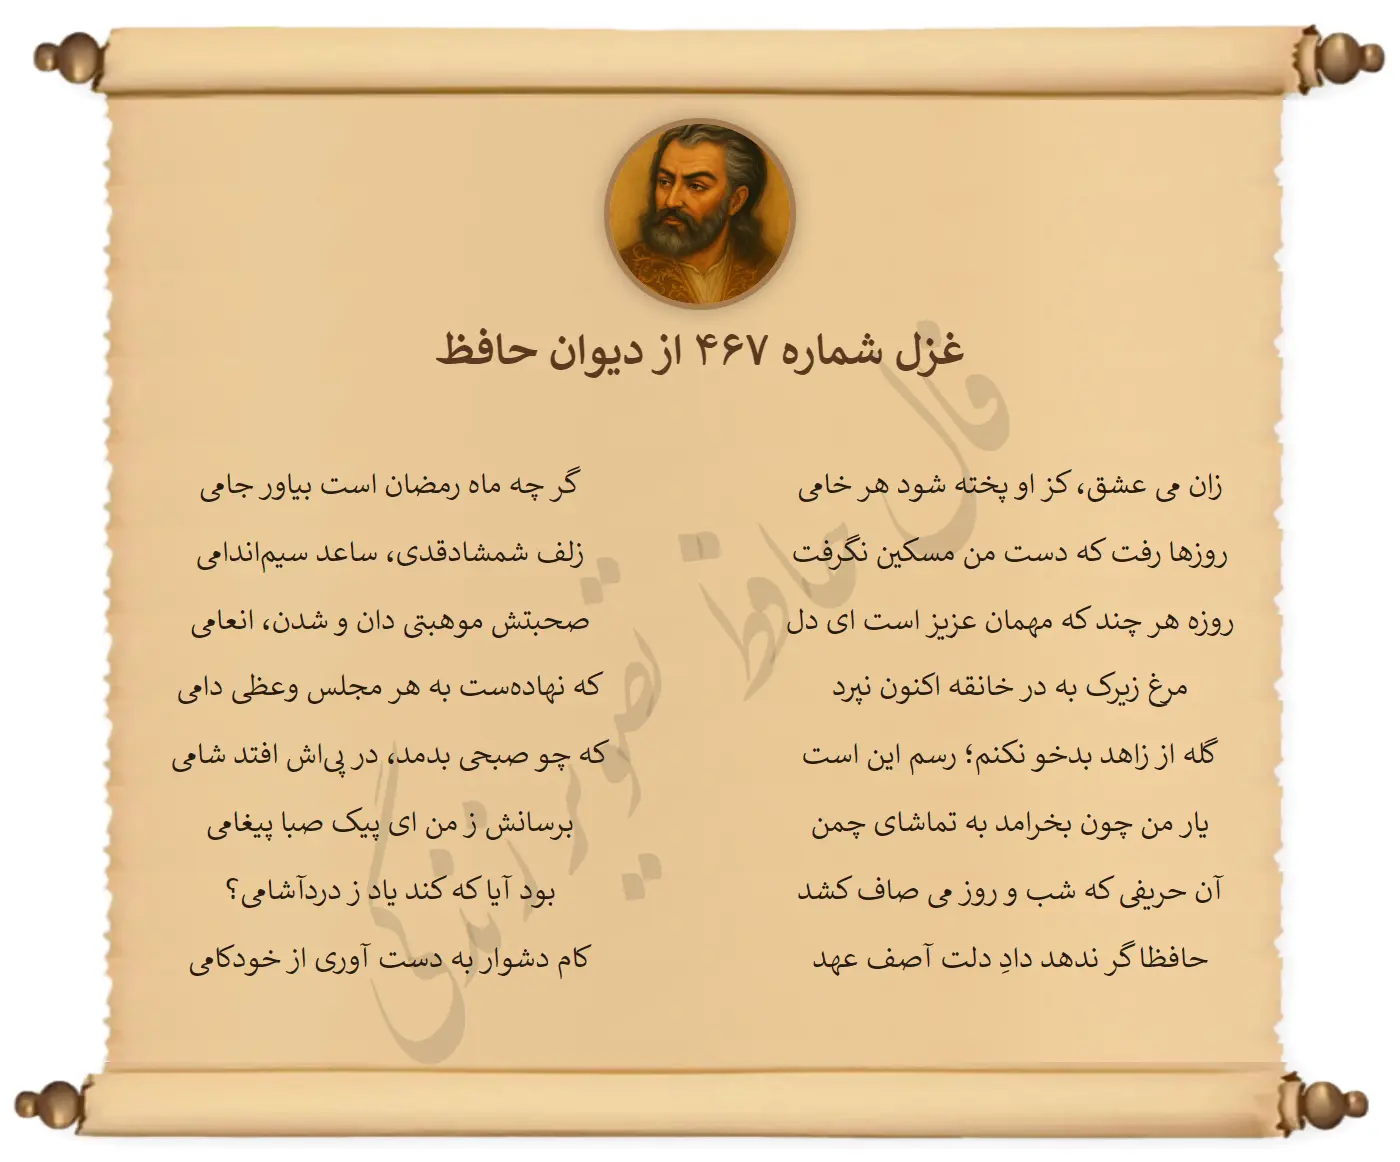 غزل شماره ۴۶۷ از دیوان حافظ
زان می عشق، کز او پخته شود هر خامی
گر چه ماه رمضان است بیاور جامی
روزها رفت که دست من مسکین نگرفت
زلف شمشادقدی، ساعد سیم‌اندامی
روزه هر چند که مهمان عزیز است ای دل
صحبتش موهبتی دان و شدن، انعامی
مرغ زیرک به در خانقه اکنون نپرد
که نهاده‌ست به هر مجلس وعظی دامی
گله از زاهد بدخو نکنم؛ رسم این است
که چو صبحی بدمد، در پی‌اش افتد شامی
یار من چون بخرامد به تماشای چمن
برسانش ز من ای پیک صبا پیغامی
آن حریفی که شب و روز می صاف کشد
بود آیا که کند یاد ز دردآشامی؟
حافظا گر ندهد دادِ دلت آصف عهد
کام دشوار به دست آوری از خودکامی
فال حافظ تصویر زندگی